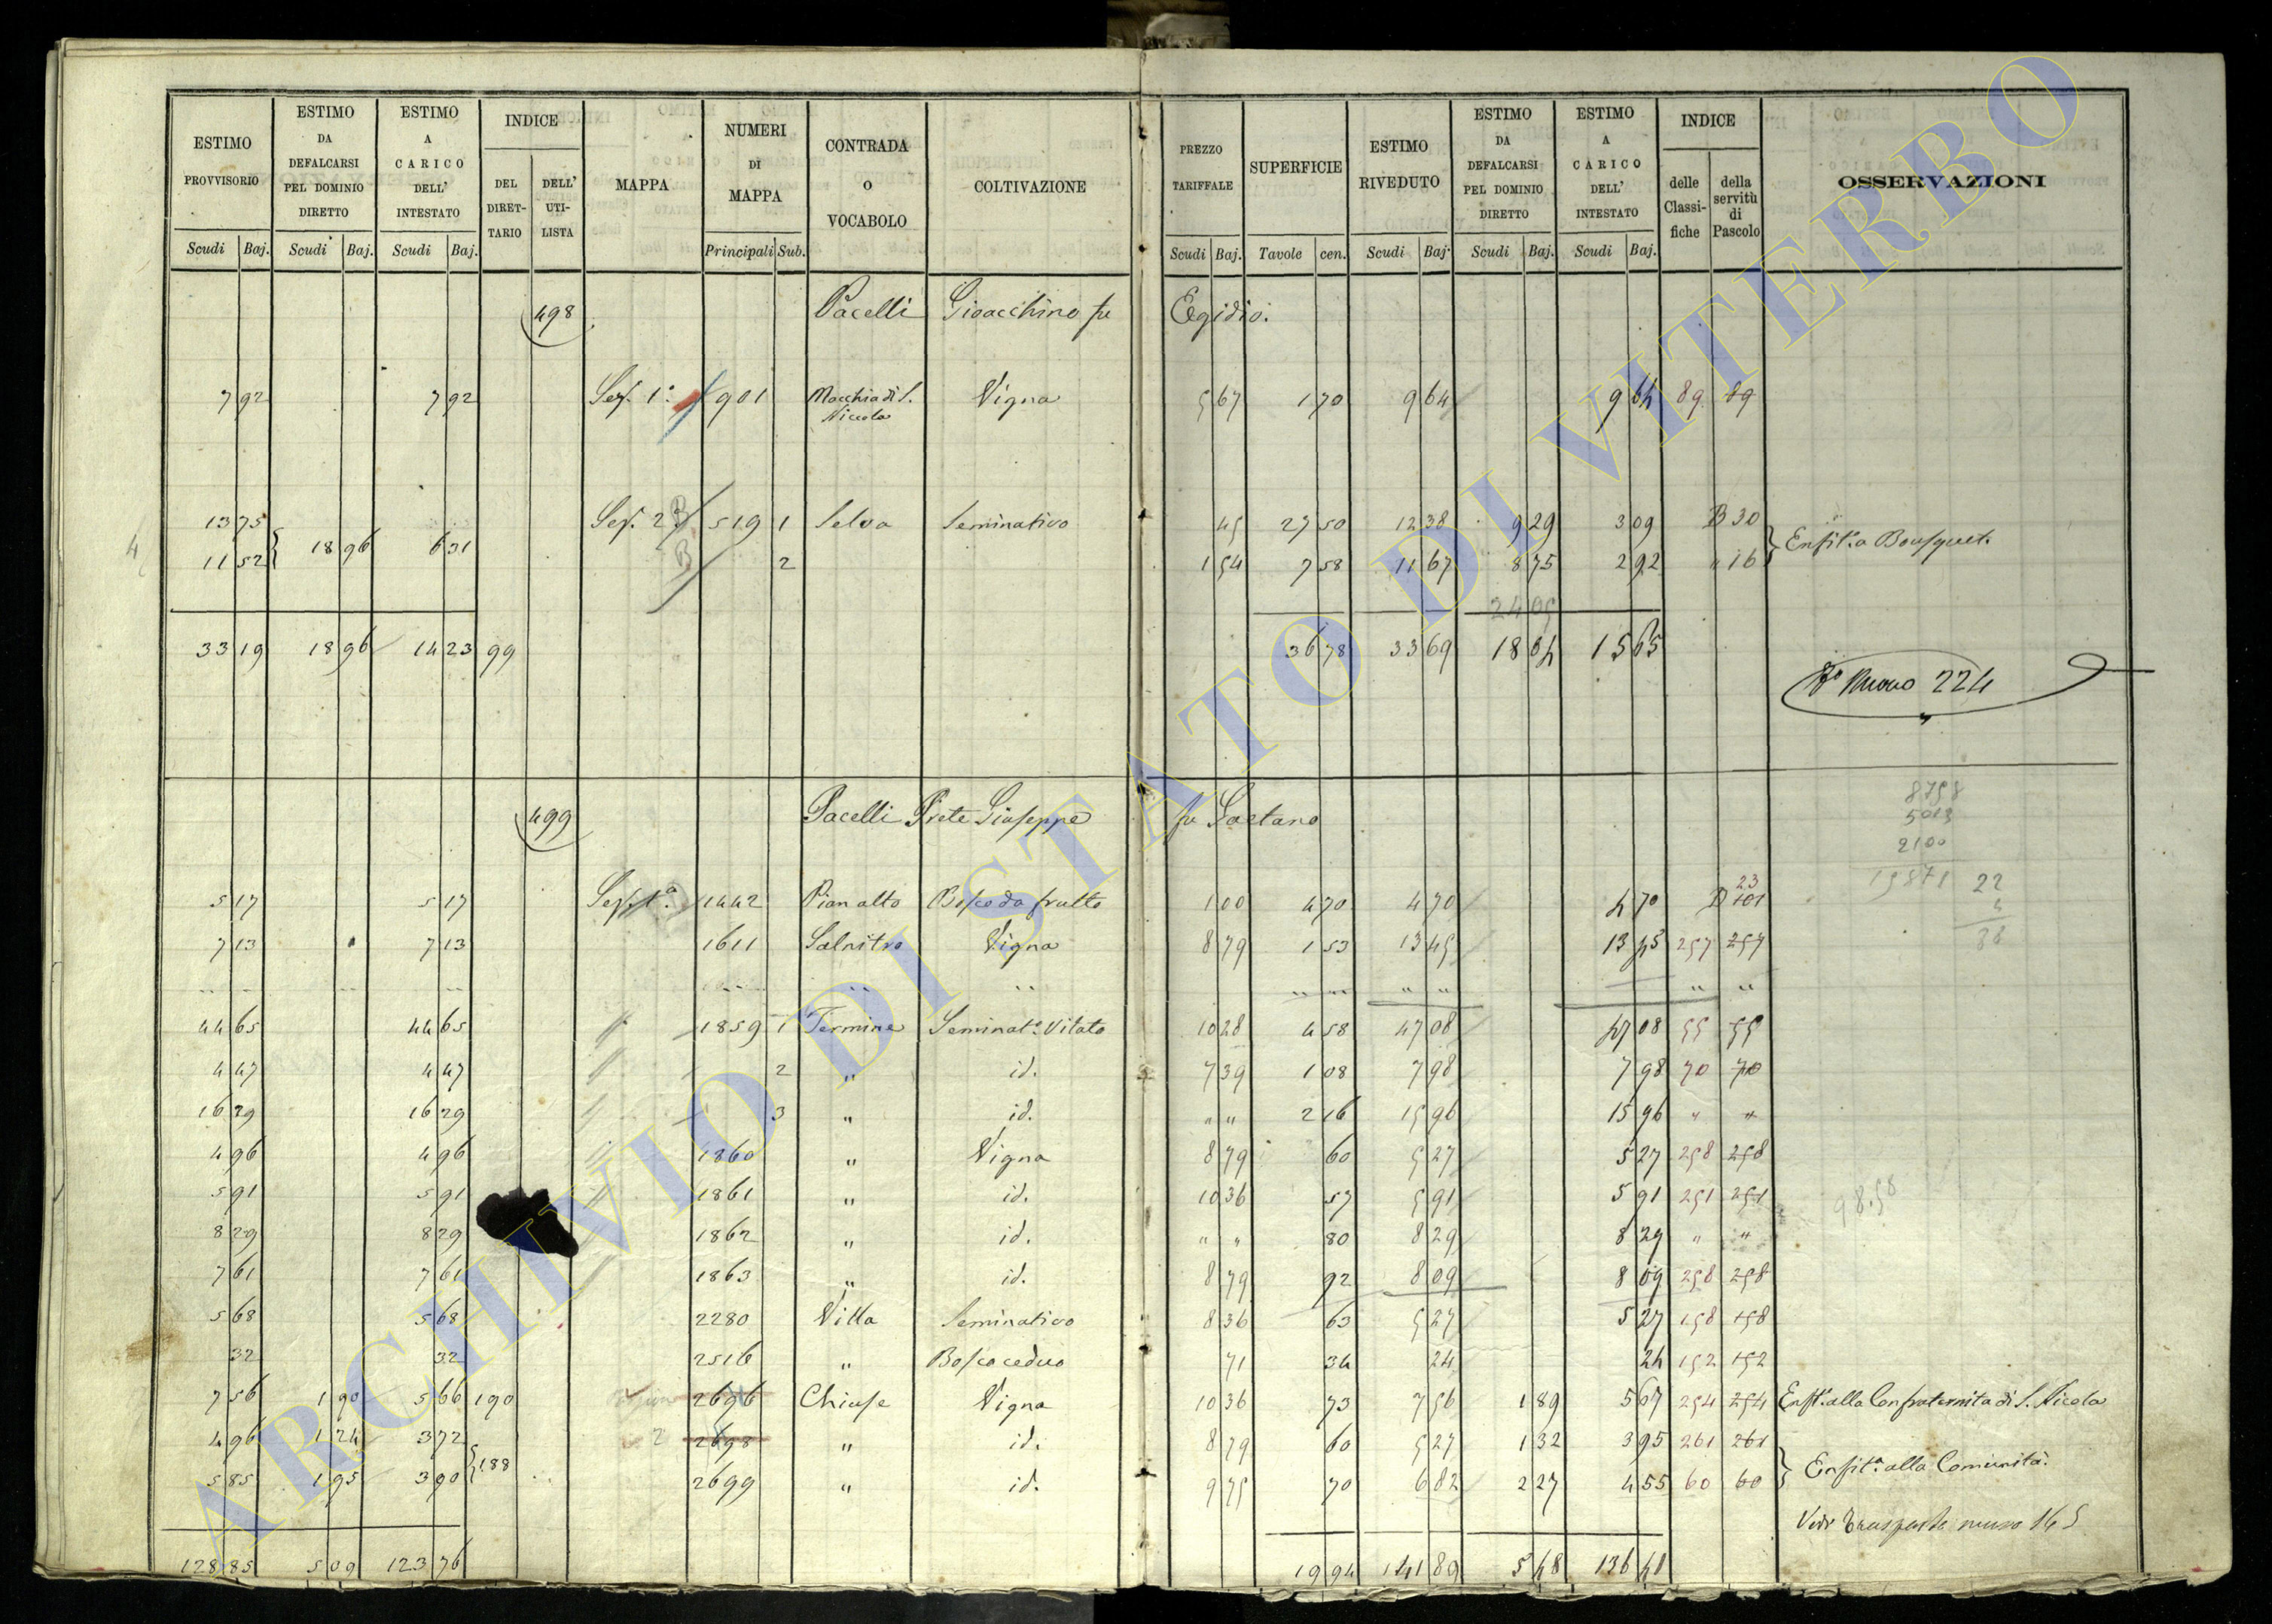 ESTIMO PROVVISORIO Scudi Baj. ESTIMO DA DEFALCARSI PEL DOMINIO DIRETTO Scudi Baj. ESTIMO A CARICO DELL' INTESTATO Scudi Baj. INDICE DEL DIRET-TARIO DELL' UTI-LISTA MAPPA NUMERI DI MAPPA Principali Sub. CONTRADA O VOCABOLO COLTIVAZIONE PREZZO TARIFFALE Scudi Baj. SUPERFICIE Tavole cen. ESTIMO RIVEDUTO Scudi Baj. ESTIMO DA DEFALCARSI PEL DOMINIO DIRETTO Scudi Baj. ESTIMO A CARICO DELL' INTESTATO Scudi Baj. INDICE delle Classi-fiche della servitù di Pascolo OSSERVAZIONI
498 Pacelli Gioacchino fu Egidio.
7 92 7 92 Sez. 1ª 901 Macchia di S. Niccola Vigna 5 67 1 70 9 64 9 64 89 89
13 75 Sez. 2ª 519 1 Selva Seminativo 45 27 50 12 38 9 29 3 09 B 30
11 52 18 96 6 31 2 1 54 7 58 11 67 8 75 2 92 " 16 Enfit.a Bousquet.
24 05
33 19 18 96 14 23 99 36 78 33 69 18 04 15 65
Nuovo 224
499 Pacelli Prete Giuseppe fu Gaetano
8758
5013
2100
15871 22
4
88
5 17 5 17 Sez. 1ª 1442 Pianalto Bosco da frutto 1 00 4 70 4 70 4 70 23 101
7 13 7 13 1611 Salnitro Vigna 8 79 1 53 13 45 13 45 257 257
44 65 44 65 1859 1 Termine Seminat.o Vitato 10 28 4 58 47 08 47 08 55 55
4 47 4 47 2 " id. 7 39 1 08 7 98 7 98 70 70
16 29 16 29 3 " id. " " 2 16 15 96 15 96 " "
4 96 4 96 1860 " Vigna 8 79 60 5 27 5 27 258 258
5 91 5 91 1861 " id. 10 36 57 5 91 5 91 251 251
98.58
8 29 8 29 1862 " id. " " 80 8 29 8 29 " "
7 61 7 61 1863 " id. 8 79 92 8 09 8 09 258 258
5 68 5 68 2280 Villa Seminativo 8 36 63 5 27 5 27 158 158
32 32 2516 " Bosco ceduo 71 34 24 24 152 152
7 56 1 90 5 66 190 2696 Chiuse Vigna 10 36 73 7 56 1 89 5 67 254 254 Enfit. alla Confraternita di S. Nicola
4 96 1 24 3 72 2 2698 " id. 8 79 60 5 27 1 32 3 95 261 261
5 85 1 95 3 90 188 2699 " id. 9 75 70 6 82 2 27 4 55 60 60 Enfit.a alla Comunità.
Vedi Trasporto numo 165
128 85 5 09 123 76 19 94 141 89 5 48 136 41
4
ARCHIVIO DI STATO DI VITERBO